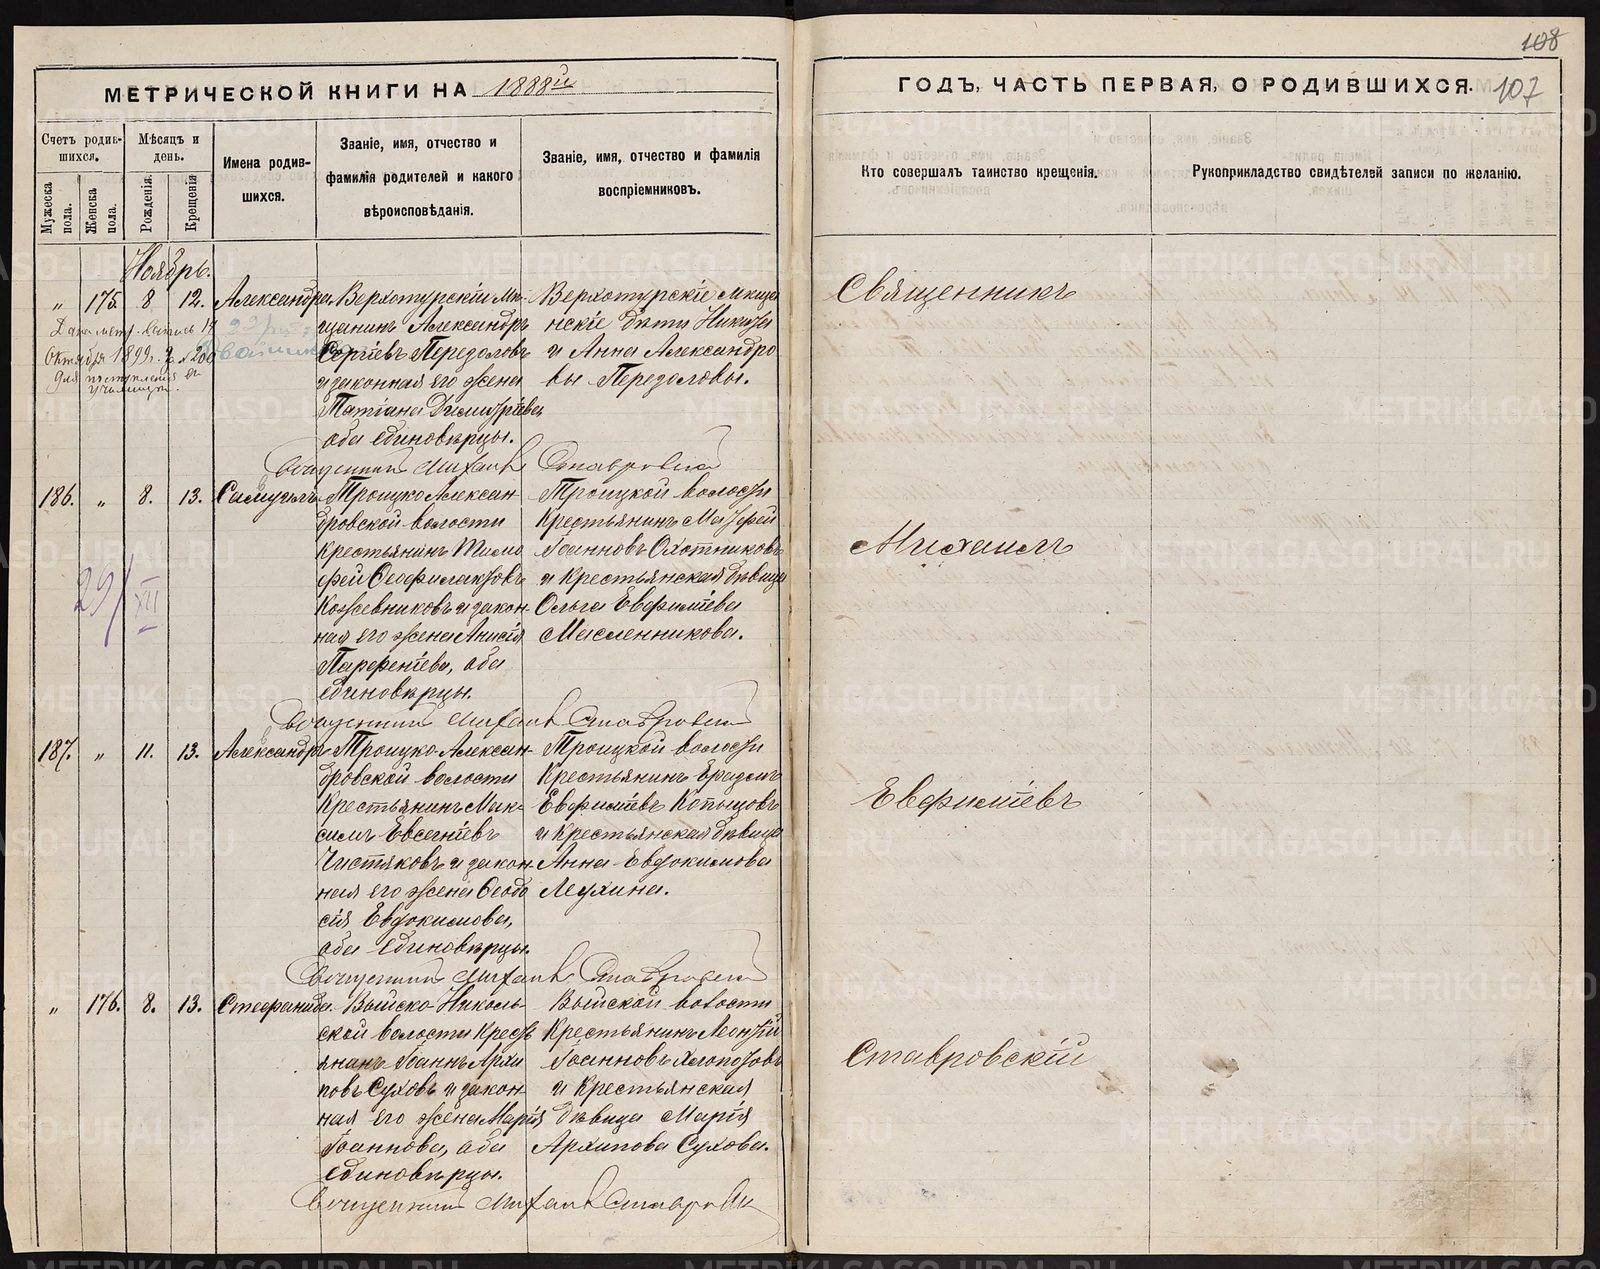 108
МЕТРИЧЕСКОЙ КНИГИ НА 1888й
ГОДЪ, ЧАСТЬ ПЕРВАЯ, О РОДИВШИХСЯ. 107
Счетъ родив-
шихся.
Мужеска пола.
Женска пола.
Мѣсяцъ и
день.
Рожденія.
Крещенія
Имена родив-
шихся.
Званіе, имя, отчество и
фамилія родителей и какого
вѣроисповѣданія.
Званіе, имя, отчество и фамилія
воспріемниковъ.
Кто совершалъ таинство крещенія.
Рукоприкладство свидѣтелей записи по желанію.
Ноябрь.
„ 175. 8 12. Александра
Верхотурскій Мѣ-
щанинъ Александръ
Сергіевъ Передоловъ
и законная его жена
Татіана Димитріева
оба единовѣрцы.
Верхотурскіе Мѣща
нскіе дѣти Никита
и Анна Александро
вы Передоловы.
Дана метр. выпись 14
Октября 1899 г. № 200
для поступленія въ
училище.
Священникъ Михаилъ Ставровскій
186. „ 8. 13. Самуилъ
Троицко Алексан-
дровской волости
Крестьянинъ Тимо
фей Феофилактовъ
Кожевниковъ и закон-
ная его жена Анисія
Парфеніева, оба
единовѣрцы.
Троицкой волости
Крестьянинъ Матфей
Іоанновъ Охотниковъ
и Крестьянская дѣвица
Ольга Евфиміева
Масленникова.
29/XII
Священникъ Михаилъ Ставровскій
187. „ 11. 13. Александръ
Троицко-Алексан-
дровской волости
Крестьянинъ Мак-
симъ Евсегніевъ
Чистяковъ и закон-
ная его жена Феодо
сія Евдокимова,
оба единовѣрцы.
Троицкой волости
Крестьянинъ
Евфиміевъ Копыловъ
и Крестьянская дѣвица
Анна Евдокимова
Леухина.
Священникъ Михаилъ Ставровскій
„ 176. 8. 13. Стефанида.
Выйско-Николь-
ской волости Кресть
янинъ Іоаннъ Архи
повъ Суховъ и закон-
ная его жена Марія
Іоаннова, оба
единовѣрцы.
Выйской волости
Крестьянинъ Леонтій
Іоанновъ Хлопотовъ
и Крестьянская
дѣвица Марія
Архипова Сухова.
Священникъ Михаилъ Ставровскій
Священникъ
Михаилъ
Евфиміевъ
Ставровскій
METRIKI.GASO-URAL.RU